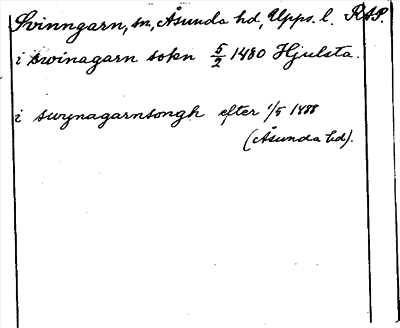 Svinngarn, sn, Åsunda hd, Upps. l. RAP.
i swinagarn sokn 5/2 1480 Hjulsta.
i swynagarnsongh efter 1/5 1488
(Åsunda hd).